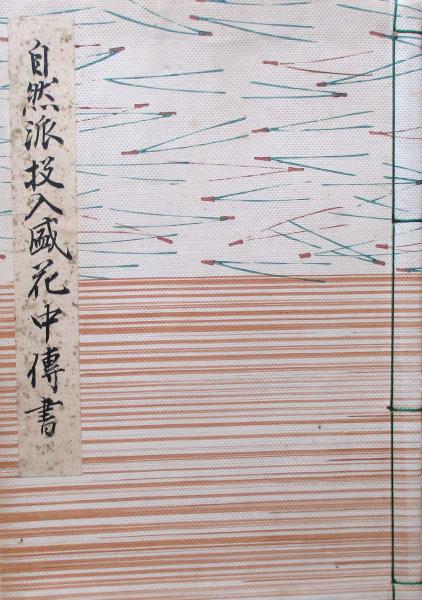 自然派投入盛花中傳書